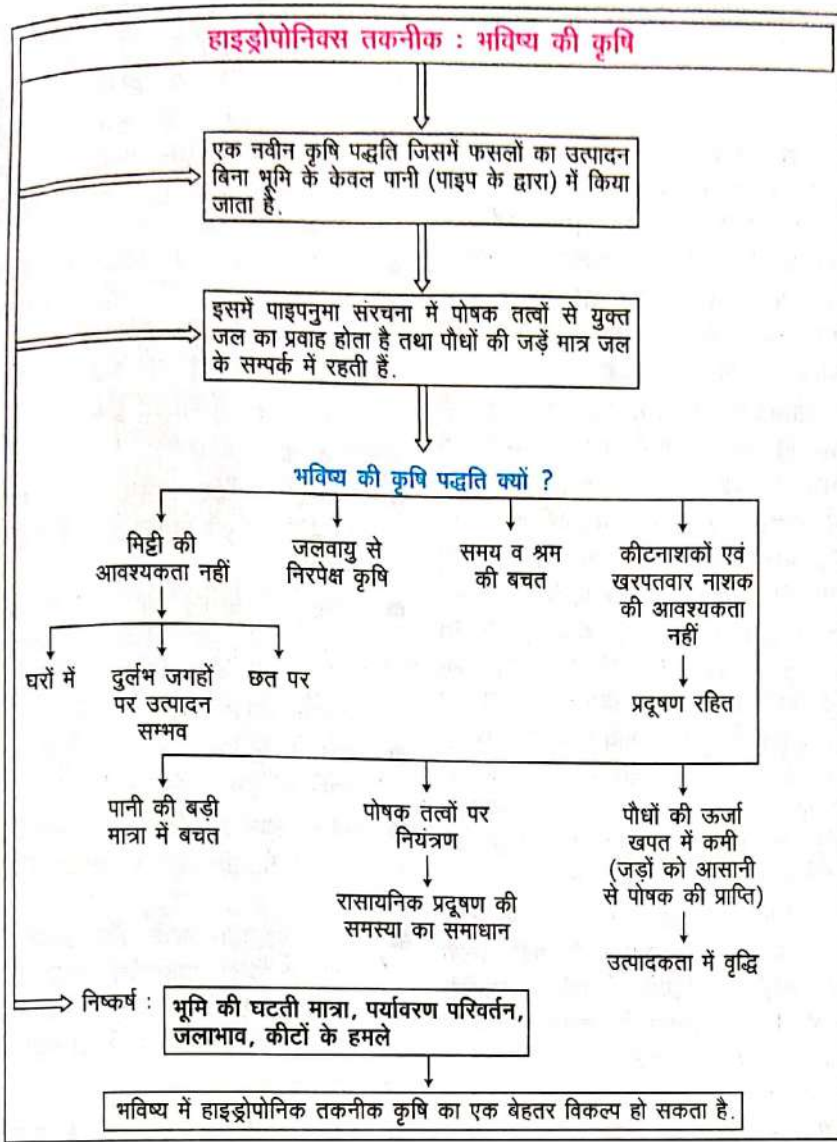 हाइड्रोपोनिक्स तकनीक : भविष्य की कृषि
एक नवीन कृषि पद्धति जिसमें फसलों का उत्पादन
बिना भूमि के केवल पानी (पाइप के द्वारा) में किया
जाता है.
इसमें पाइपनुमा संरचना में पोषक तत्वों से युक्त
जल का प्रवाह होता है तथा पौधों की जड़ें मात्र जल
के सम्पर्क में रहती हैं.
भविष्य की कृषि पद्धति क्यों ?
मिट्टी की
आवश्यकता नहीं
जलवायु से
निरपेक्ष कृषि
समय व श्रम
की बचत
कीटनाशकों एवं
खरपतवार नाशक
की आवश्यकता
नहीं
घरों में
दुर्लभ जगहों
पर उत्पादन
सम्भव
छत पर
प्रदूषण रहित
पानी की बड़ी
मात्रा में बचत
पोषक तत्वों पर
नियंत्रण
रासायनिक प्रदूषण की
समस्या का समाधान
पौधों की ऊर्जा
खपत में कमी
(जड़ों को आसानी
से पोषक की प्राप्ति)
उत्पादकता में वृद्धि
निष्कर्ष :
भूमि की घटती मात्रा, पर्यावरण परिवर्तन,
जलाभाव, कीटों के हमले
भविष्य में हाइड्रोपोनिक तकनीक कृषि का एक बेहतर विकल्प हो सकता है.